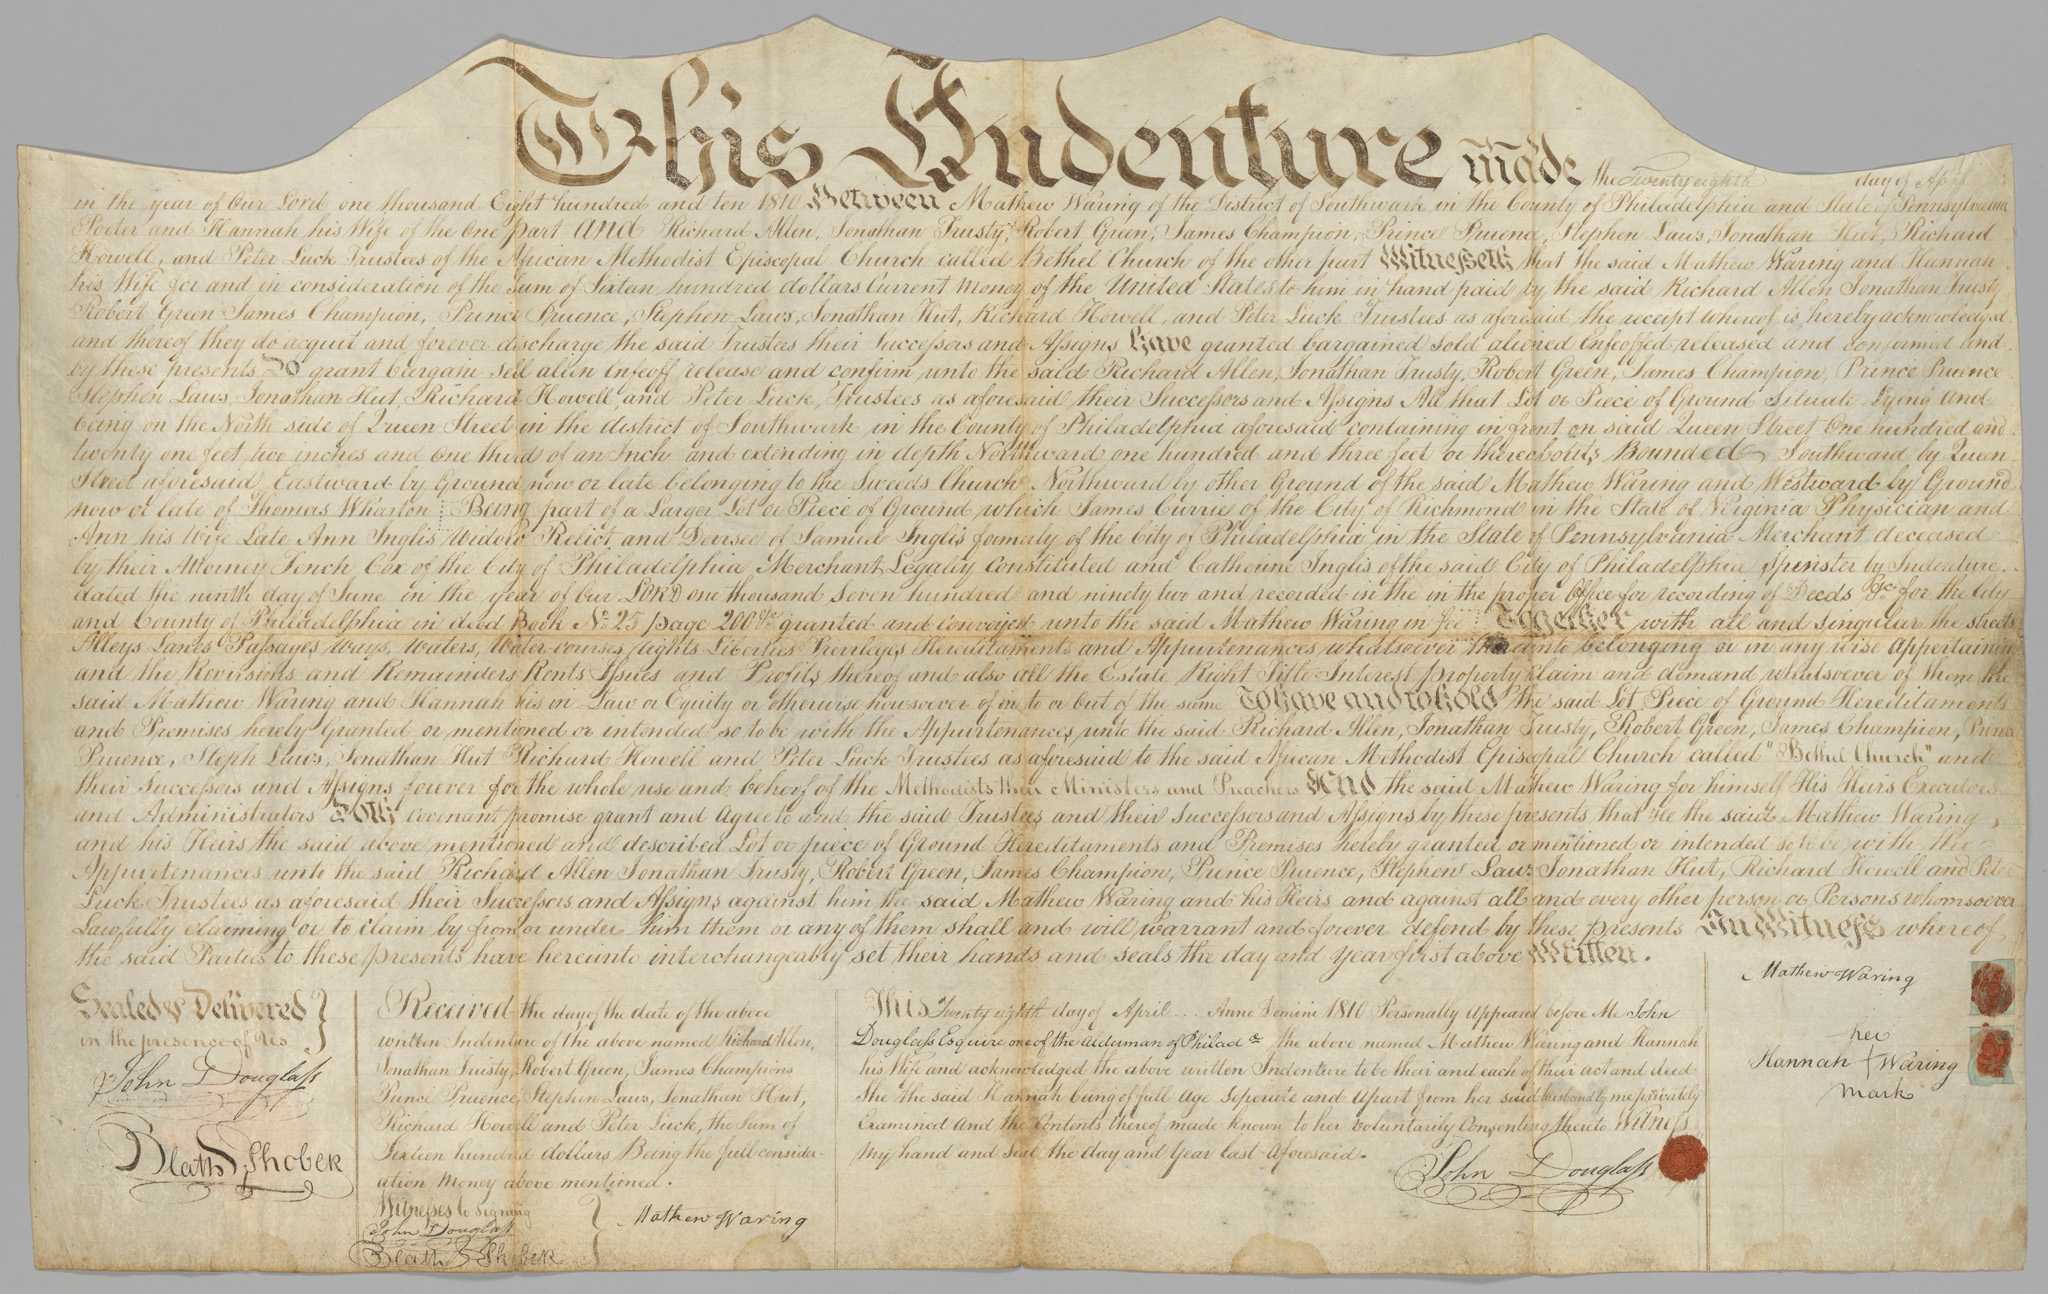 This Indenture made the Twenty eighth day of April
in the year of Our Lord one thousand Eight hundred and ten 1810 Between Mathew Waring of the District of Southwark in the County of Philadelphia and State of Pennsylvania
Porter and Hannah his Wife of the One part and Richard Allen, Jonathan Trusty, Robert Green, James Champion, Prince Pruence, Stephen Laws, Jonathan Hut, Richard
Howell, and Peter Luck Trustees of the African Methodist Episcopal Church called Bethel Church of the other part Witnesseth that the said Mathew Waring and Hannah
his Wife for and in consideration of the Sum of Sixteen hundred dollars Current Money of the United States to him in hand paid by the said Richard Allen Jonathan Trusty
Robert Green James Champion, Prince Pruence, Stephen Laws, Jonathan Hut, Richard Howell, and Peter Luck Trustees as aforesaid the receipt whereof is hereby acknowledged
and thereof they do acquit and forever discharge the said Trustees their Successors and Assigns Have granted bargained sold aliened Enfeoffed released and confirmed and
by these presents Do grant bargain sell alien Enfeoff release and confirm unto the said Richard Allen, Jonathan Trusty, Robert Green, James Champion, Prince Pruence
Stephen Laws, Jonathan Hut, Richard Howell and Peter Luck, Trustees as aforesaid their Successors and Assigns All that Lot or Piece of Ground Situate Lying and
being on the North side of Queen Street in the district of Southwark in the County of Philadelphia aforesaid containing in front on said Queen Street One hundred and
twenty one feet, two inches and one third of an Inch and extending in depth Northward one hundred and three feet or thereabouts Bounded Southward by Queen
Street aforesaid, Eastward by Ground now or late belonging to the Sweeds Church Northward by other Ground of the said Mathew Waring and Westward by Ground
now or late of Thomas Wharton Being part of a Larger Lot or Piece of Ground which James Currie of the City of Richmond in the State of Virginia Physician and
Ann his Wife Late Ann Inglis Widow Relict and Devisee of Samuel Inglis formerly of the City of Philadelphia in the State of Pennsylvania Merchant deceased
by their Attorney Tench Cox of the City of Philadelphia Merchant Legally Constituted and Catherine Inglis of the said City of Philadelphia Spinster by Indenture
dated the ninth day of June in the year of our LORD one thousand seven hundred and ninety two and recorded in the in the proper Office for recording of Deeds &c for the City
and County of Philadelphia in deed Book No 25 page 200 &c granted and conveyed unto the said Mathew Waring in fee Together with all and singular the streets
Alleys Lanes Passages, Ways, Waters, Water-courses, Rights Liberties Privileges Hereditaments and Appurtenances whatsoever thereunto belonging or in any wise Appertaining
and the Reversions and Remainders Rents Issues and Profits thereof and also all the Estate Right Title Interest property claim and demand whatsoever of them the
said Mathew Waring and Hannah his in Law or Equity or otherwise howsoever of in to or out of the same To Have and to Hold the said Lot Piece of Ground Hereditaments
and Premises hereby Granted or mentioned or intended so to be with the Appurtenances, unto the said Richard Allen, Jonathan Trusty, Robert Green, James Champion, Prince
Pruence, Steph Laws, Jonathan Hut Richard Howell and Peter Luck Trustees as aforesaid to the said African Methodist Episcopal Church called "Bethel Church" and
their Successors and Assigns forever for the whole use and behoof of the Methodists their Ministers and Preachers And the said Mathew Waring for himself His Heirs Executors
and Administrators Doth Covenant promise grant and Agree to and the said Trustees and their Successors and Assigns by these presents that He the said Mathew Waring
and his Heirs the said above mentioned and described Lot or piece of Ground Hereditaments and Premises hereby granted or mentioned or intended so to be with the
Appurtenances unto the said Richard Allen Jonathan Trusty, Robert Green, James Champion, Prince Pruence, Stephen Laws Jonathan Hut, Richard Howell and Peter
Luck Trustees as aforesaid their Successors and Assigns against him the said Mathew Waring and his Heirs and against all and every other person or Persons whomsoever
Lawfully claiming or to claim by from or under him them or any of them shall and will warrant and forever defend by these presents In Witness whereof
the said Parties to these presents have hereunto interchangeably set their hands and seals the day and Year first above Written.
Sealed & Delivered
in the presence of Us
John Douglass
Heath Shober
Received the day of the date of the above
written Indenture of the above named Richard Allen,
Jonathan Trusty, Robert Green, James Champions
Prince Pruence, Stephen Laws, Jonathan Hut,
Richard Howell and Peter Luck, the Sum of
Sixteen hundred dollars Being the full consider-
ation Money above mentioned.
Witnesses to Signing
John Douglass
Mathew Waring
This Twenty eighth day of April Anno Domini 1810 Personally Appeared before Me John
Douglass Esquire one of the Alderman of Philada the above named Mathew Waring and Hannah
his Wife and acknowledged the above written Indenture to be their and each of their act and deed
She the said Hannah being of full Age Seperate and Apart from her said husband by me privately
Examined and the Contents thereof made known to her Voluntarily Consenting thereto Witness
My hand and Seal the day and Year last Aforesaid.
John Douglass
Mathew Waring
her
Hannah + Waring
mark